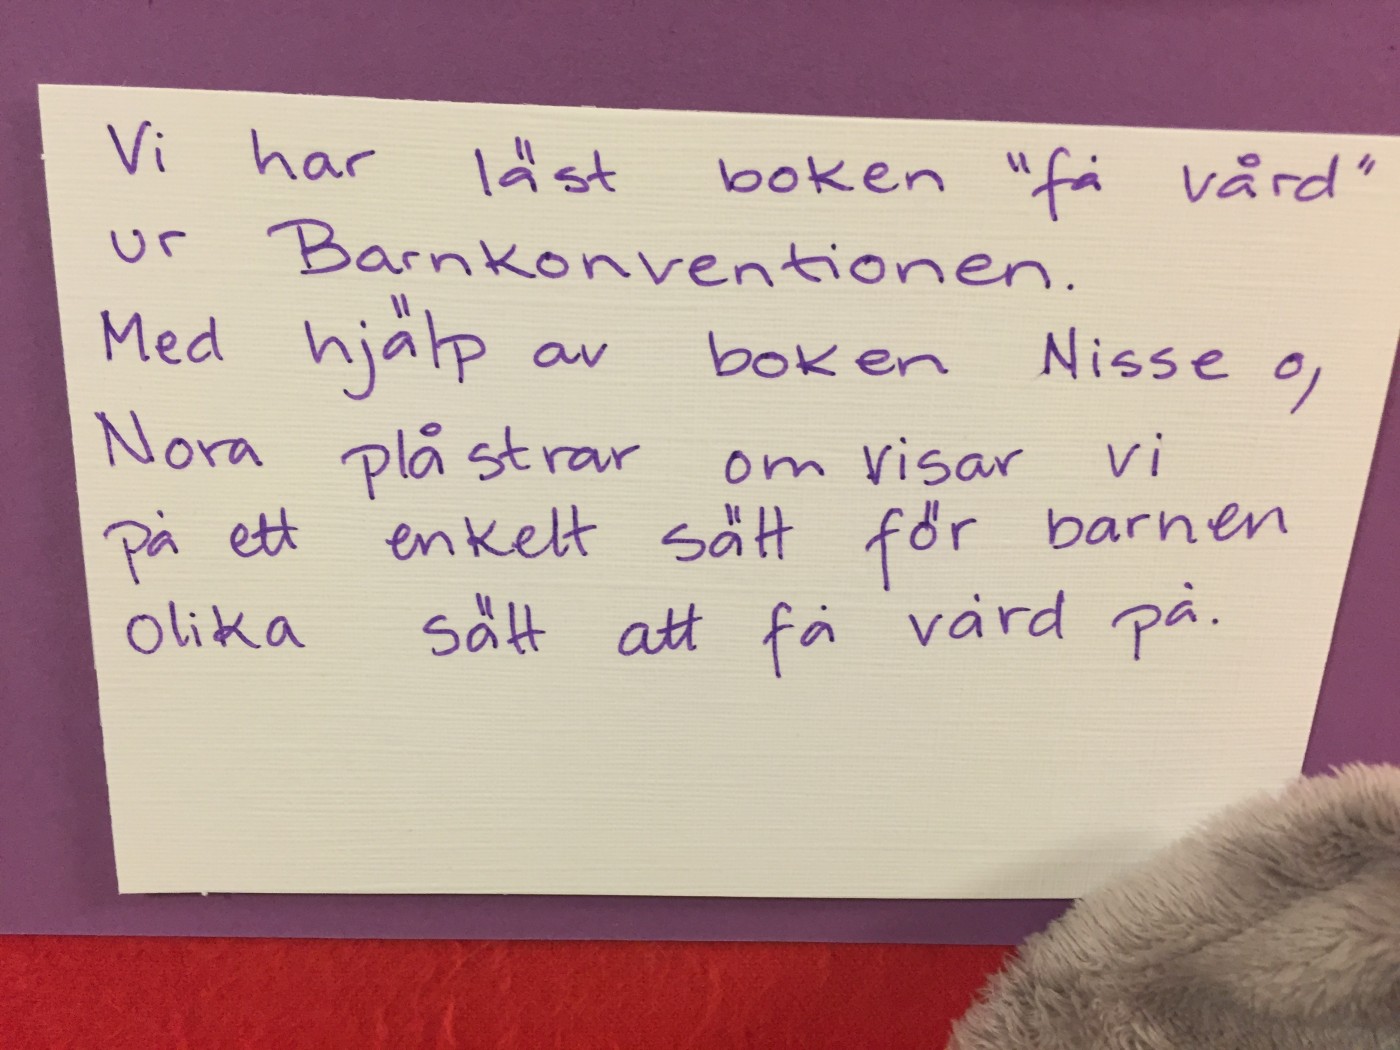 Vi har läst boken "få vård"
ur Barnkonventionen.
Med hjälp av boken Nisse o,
Nora plåstrar om visar vi
på ett enkelt sätt för barnen
olika sätt att få vård på.